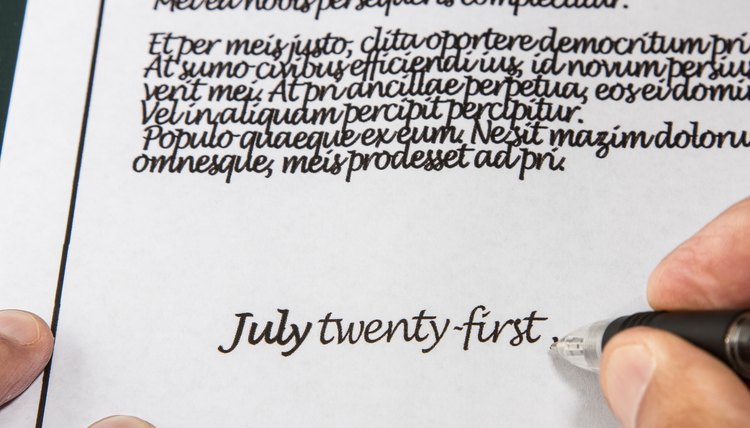 Mei ea nobis persequeris complectitur.
Et per meis justo, clita oportere democritum pri
At sumo civibus efficiendi ius, id novum persiu
verit mei. At pri ancillae perpetua, eos ei domin
Vel in aliquam percipit percipitur.
Populo quaeque ex eum. Ne sit mazim doloru
omnesque, meis prodesset ad pri.
July twenty-first ,